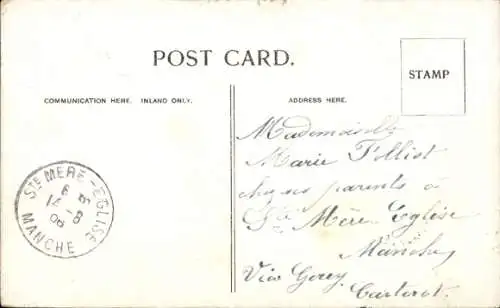 POST CARD.
STAMP
COMMUNICATION HERE. INLAND ONLY.
ADDRESS HERE.
Mademoiselle
Marie Folliot
chez ses parents à
Ste Mère Eglise
Manche
Via Gorey
Carteret.
STE MERE-EGLISE
MANCHE